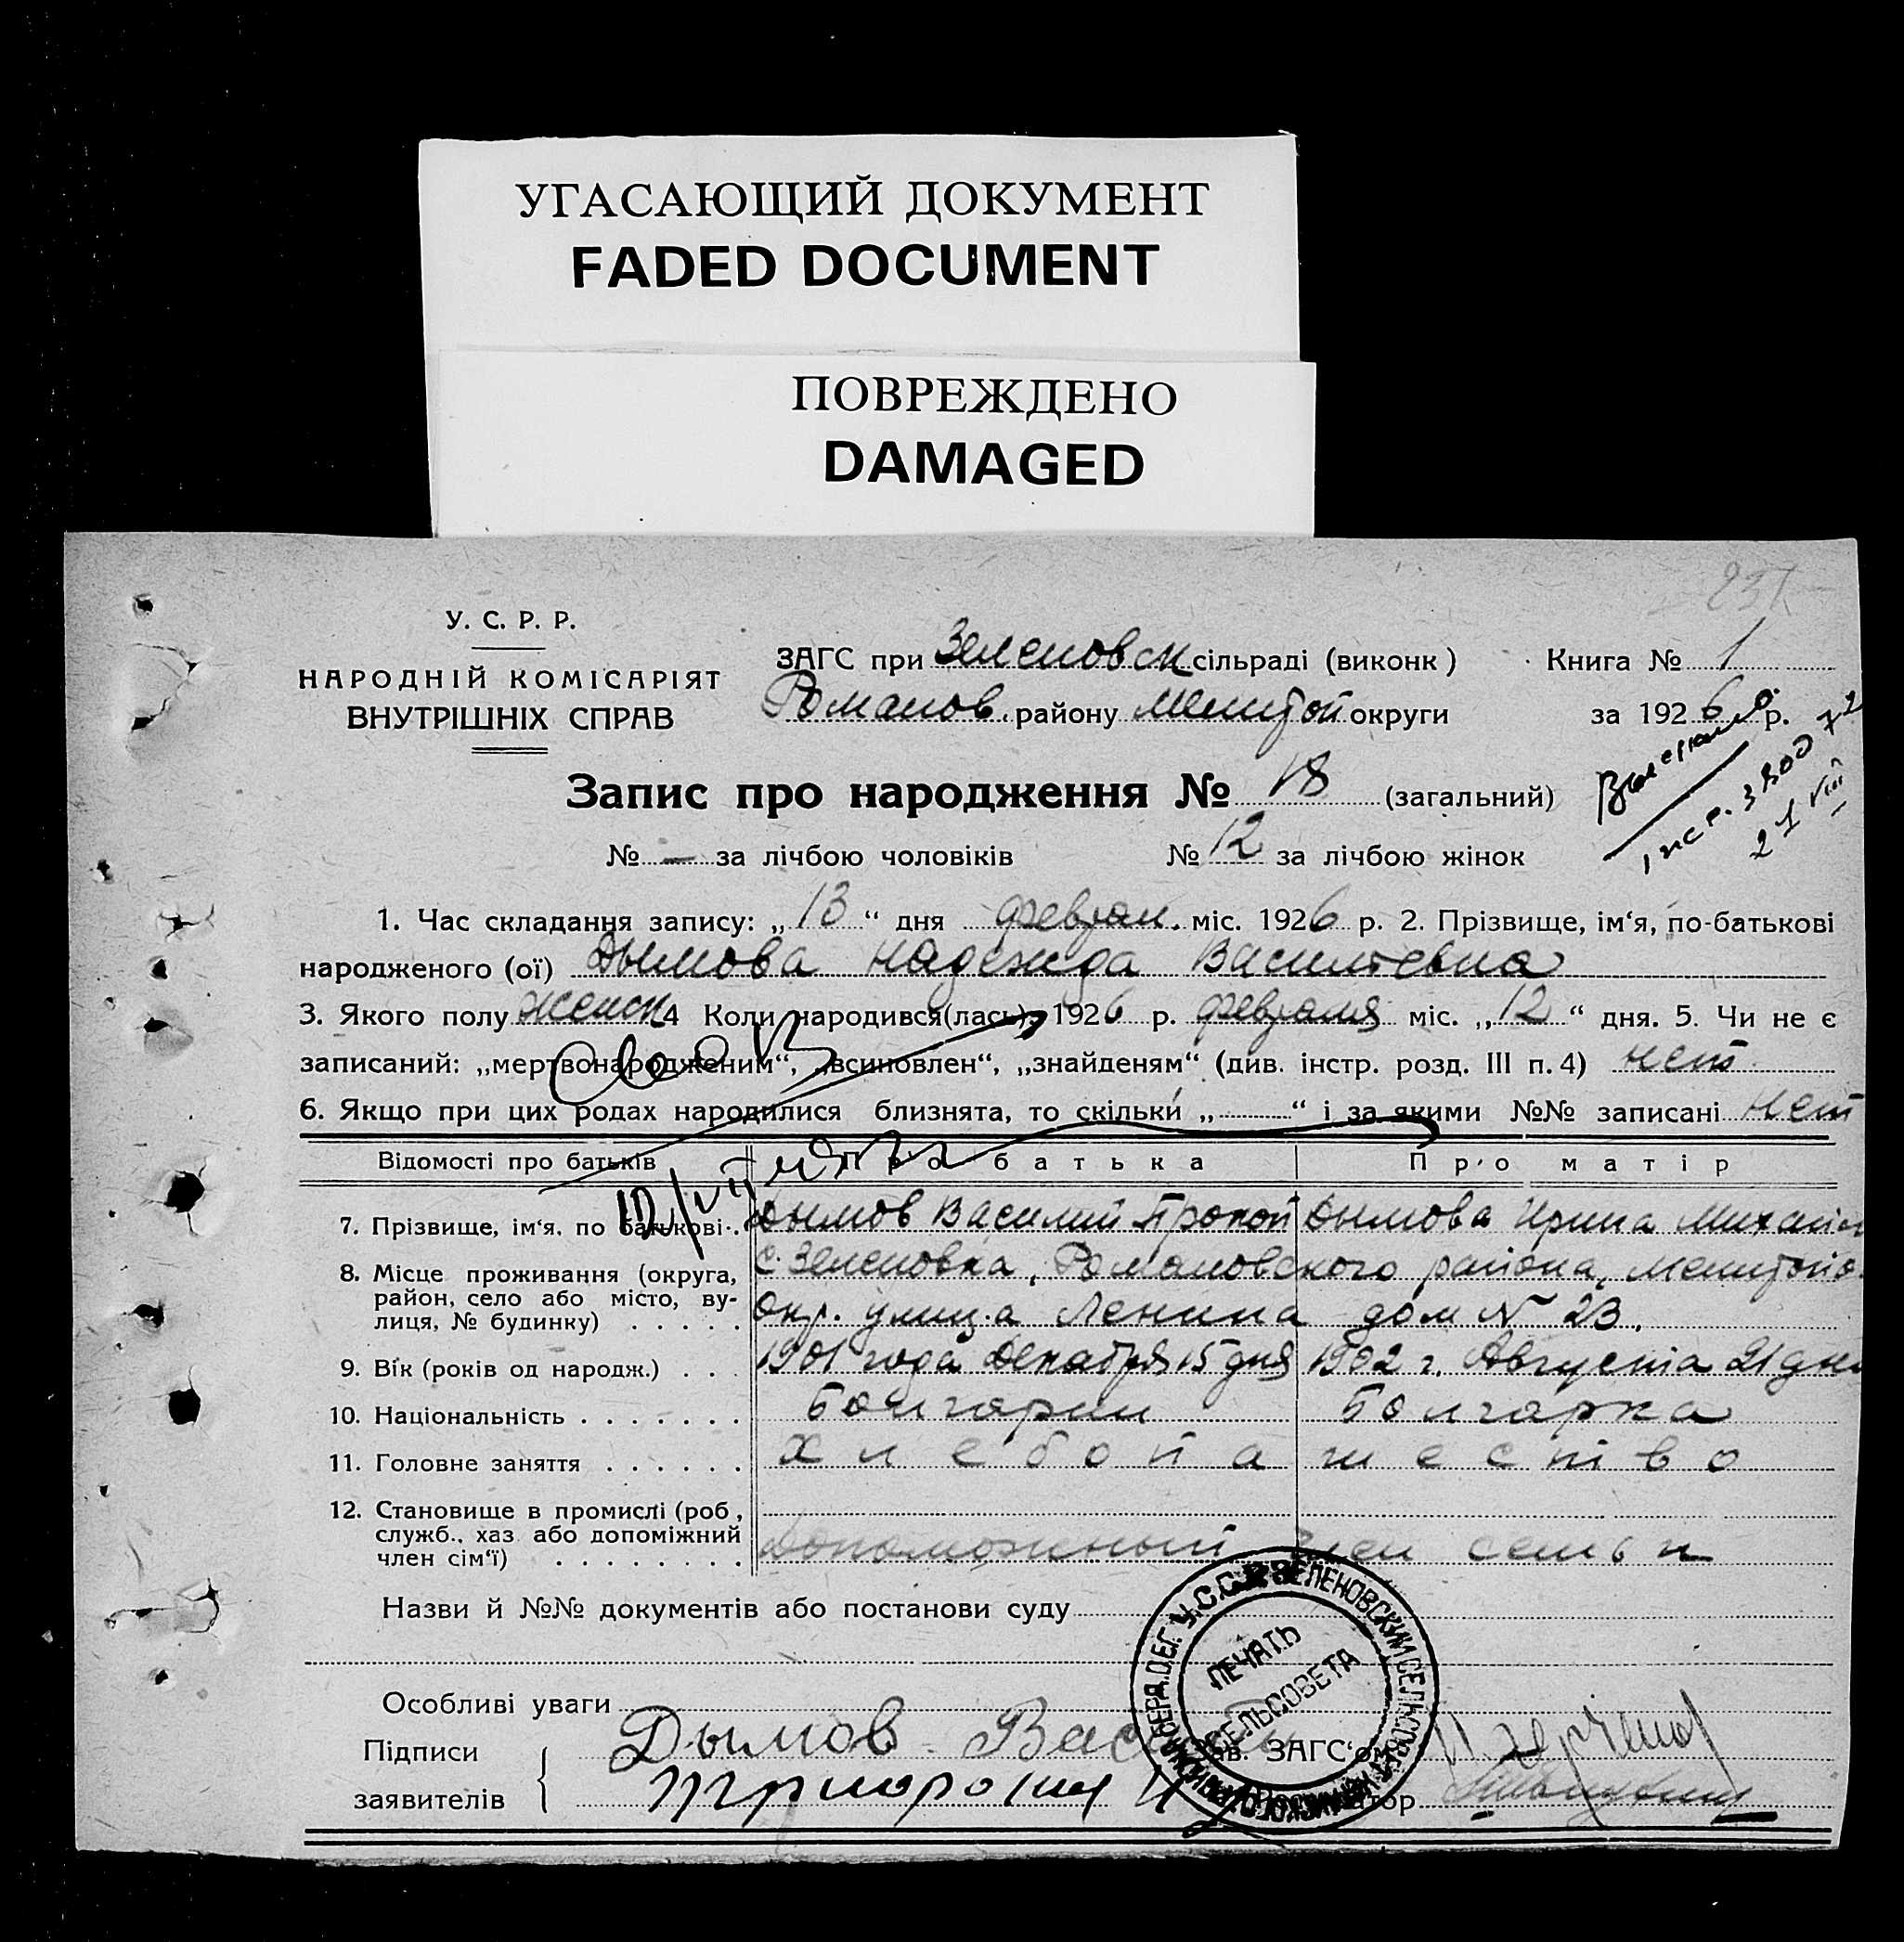 УГАСАЮЩИЙ ДОКУМЕНТ
FADED DOCUMENT
ПОВРЕЖДЕНО
DAMAGED
У. С. Р. Р.
НАРОДНІЙ КОМІСАРІЯТ
ВНУТРІШНІХ СПРАВ
ЗАГС при Зеленовск сільраді (виконк)
Романов. району Мелитоп округи
Книга № 1
за 1926 р.
Запис про народження № 18 (загальний)
№ — за лічбою чоловіків № 12 за лічбою жінок
1. Час складання запису: „13“ дня феврал. міс. 1926 р. 2. Прізвище, ім‘я, по-батькові
народженого (ої) Дымова Надежда Васильевна
3. Якого полу женск 4 Коли народився(лась): 1926 р. февраля міс. „12“ дня. 5. Чи не є
записаний: „мертвонародженим“, „всиновлен“, „знайденям“ (див. інстр. розд. III п. 4) нет
6. Якщо при цих родах народилися близнята, то скільки „ “ і за якими №№ записані нет
Відомості про батьків Про батька Про матір
7. Прізвище, ім‘я, по батькові . Дымов Василий Прокоп Дымова Ирина Михайл
8. Місце проживання (округа, район, село або місто, вулиця, № будинку) . . . . . с. Зеленовка, Романовского района, Мелитопо.
окр. улица Ленина дом № 23.
9. Вік (років од народж.) . . . 1901 года Декабря 15 дня 1902 г. Августа 21 дня
10. Національність . . . . . . . Болгарин Болгарка
11. Головне заняття . . . . . . хлебопашество
12. Становище в промислі (роб, служб., хаз або допоміжний член сім‘ї) . . . . . . . . Допоможный член семьи
Назви й №№ документів або постанови суду
Особливі уваги
Підписи заявителів
Дымов Вас
Зав. ЗАГС‘ом
У.С.С.Р. ЗЕЛЕНОВСКИЙ СЕЛЬСОВЕТ
ПЕЧАТЬ
СЕЛЬСОВЕТА